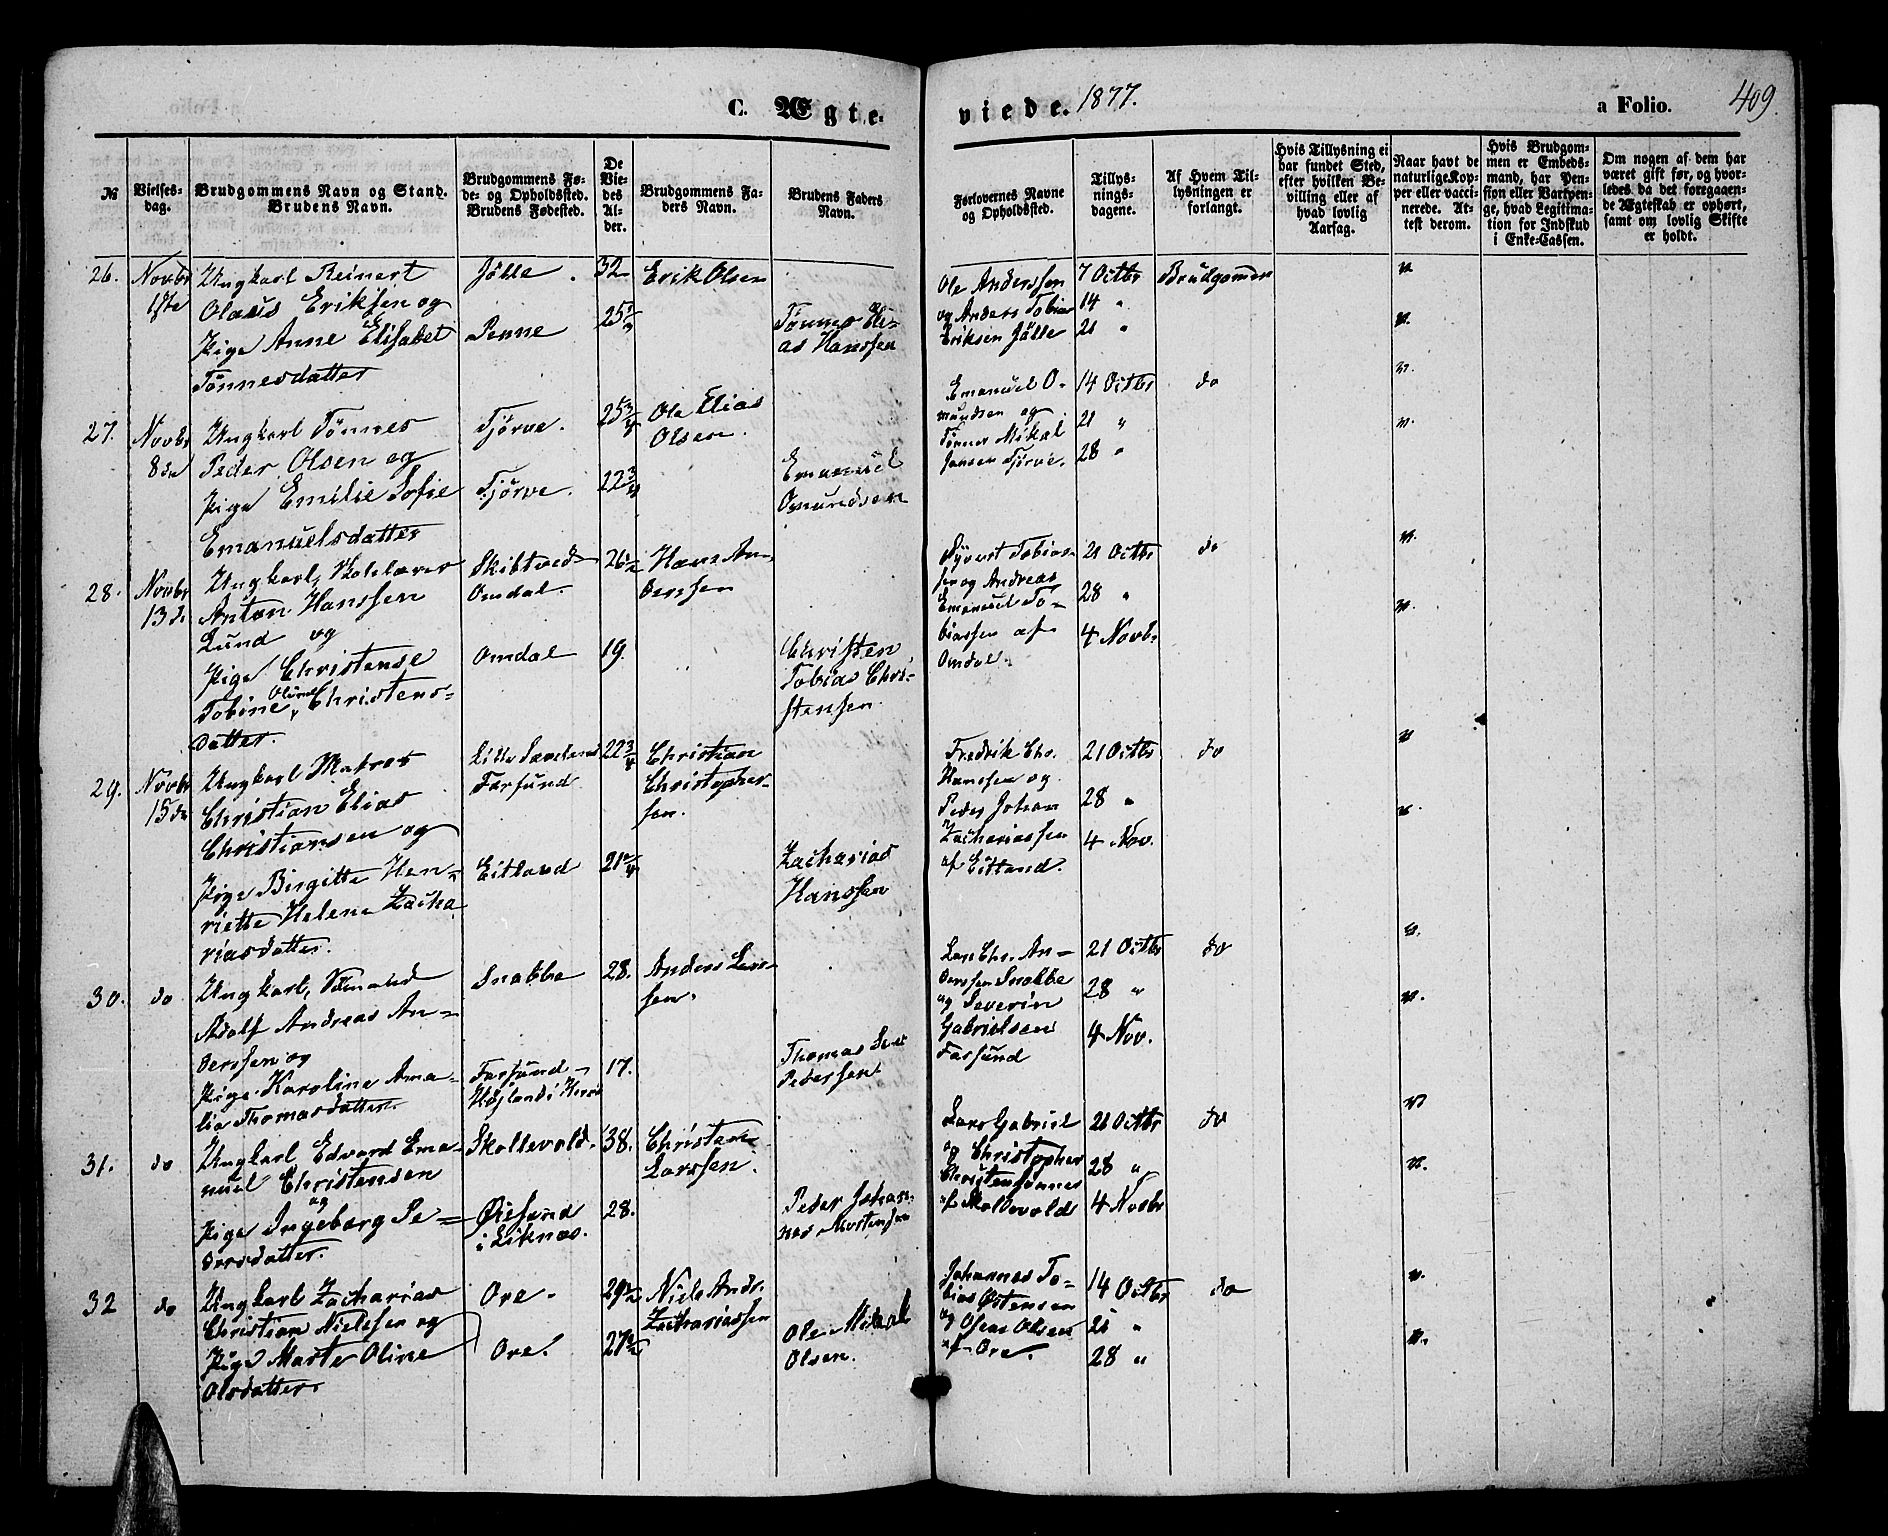 C. Ægte-
viede. 1877.
a Folio. 409.
№
Vielses-
dag.
Brudgommens Navn og Stand.
Brudens Navn.
Brudgommens Fø-
de- og Opholdssted.
Brudens Fødested.
De
Vie-
des
Al-
der.
Brudgommens Fa-
ders Navn.
Brudens Faders
Navn.
Forlovernes Navne
og Opholdssted.
Tillys-
nings-
dagene.
Af Hvem Til-
lysningen er
forlangt.
Hvis Tillysning ei
har fundet Sted,
efter hvilken Be-
villing eller af
hvad lovlig
Aarsag.
Naar havt de
naturlige Kop-
per eller vacci-
nerede. At-
test derom.
Hvis Brudgom-
men er Embeds-
mand, har Pen-
sion eller Vartpen-
ge, hvad Legitima-
tion for Indskud
i Enke-Cassen.
Om nogen af dem har
været gift før, og hvor-
ledes da det foregaaen-
de Ægteskab er ophørt,
samt om lovlig Skifte
er holdt.
26.
Novbr
1ste
Ungkarl Reinert
Olaus Eriksen og
Pige Anne Elisabet
Tønnesdatter
Jølle.
Penne
32
25½
Erik Olsen
Tønnes Eli-
as Hanssen
Ole Anderssen
og Anders Tobias
Eriksen Jølle
7 Octbr
14 "
21 "
Brudgomen
v.
v.
27.
Novbr
8de
Ungkarl Tønnes
Peder Olsen og
Pige Emilie Sofie
Emanuelsdatter
Tjørve.
Tjørve.
25¾
22¾
Ole Elias
Olsen.
Emanuel
Omundsen
Emanuel O-
mundsen og
Tønnes Mikal
Jansen Tjørve.
14 Octbr
21 "
28 "
do
v.
v.
28.
Novbr
13de
Ungkarl, Skolelærer
Anton Hanssen
Lund og
Pige Christense
Tobine Oline Christens-
datter.
Skibtved
Omdal.
Omdal
26½
19.
Hans An-
derssen
Christen
Tobias Chri-
stensen.
Syvert Tobias-
sen og Andreas
Emanuel To-
biassen af
Omdal.
21 Octbr
28 "
4 Novbr
do
v.
v.
29.
Novbr
15de
Ungkarl Matros
Christian Elias
Christiansen og
Pige Birgitte Hen-
riette Helene Zacha
riasdatter.
Farsund
Eitland
22¾
Christian
Christopher-
sen.
Zacharias
Hanssen
Fredrik Chr.
Hanssen og
Peder Johan
Zachariassen
af Eitland.
21 Octbr
28 "
4 Nov.
do
v
v.
30.
do
Ungkarl, Sømand
Adolf Andreas An-
derssen og
Pige Karoline Ama-
lia Thomasdatter.
Snabbe
Farsund
28.
17.
Anders Lars-
sen.
Thomas
Pederssen
Lars Chr. An-
derssen Snabbe
og Severin
Gabrielsen
Farsund
21 Octbr
28 "
4 Nov.
do
v.
v.
31.
do
Ungkarl Edvard Ema-
nuel Christensen
og
Pige Ingeborg Pe-
dersdatter.
Skollevold.
Øiesund
i Liknæs.
38.
28.
Christen
Larssen.
Peder Johan-
nes
Lars Gabriel
og Christopher
af Skollevold
21 Octbr
28 "
4 Novbr
do
v
v.
32
do
Ungkarl Zacharias
Christian Nielssen og
Pige Marte Oline
Olsdatter.
Ore.
Ore.
29½
27½
Niels Andr.
Zachariassen
Ole Mikal
Olsen.
Johannes To-
bias Østensen
og Osne Olsen
af Ore.
14 Octbr
21 "
28 "
do
v.
v.